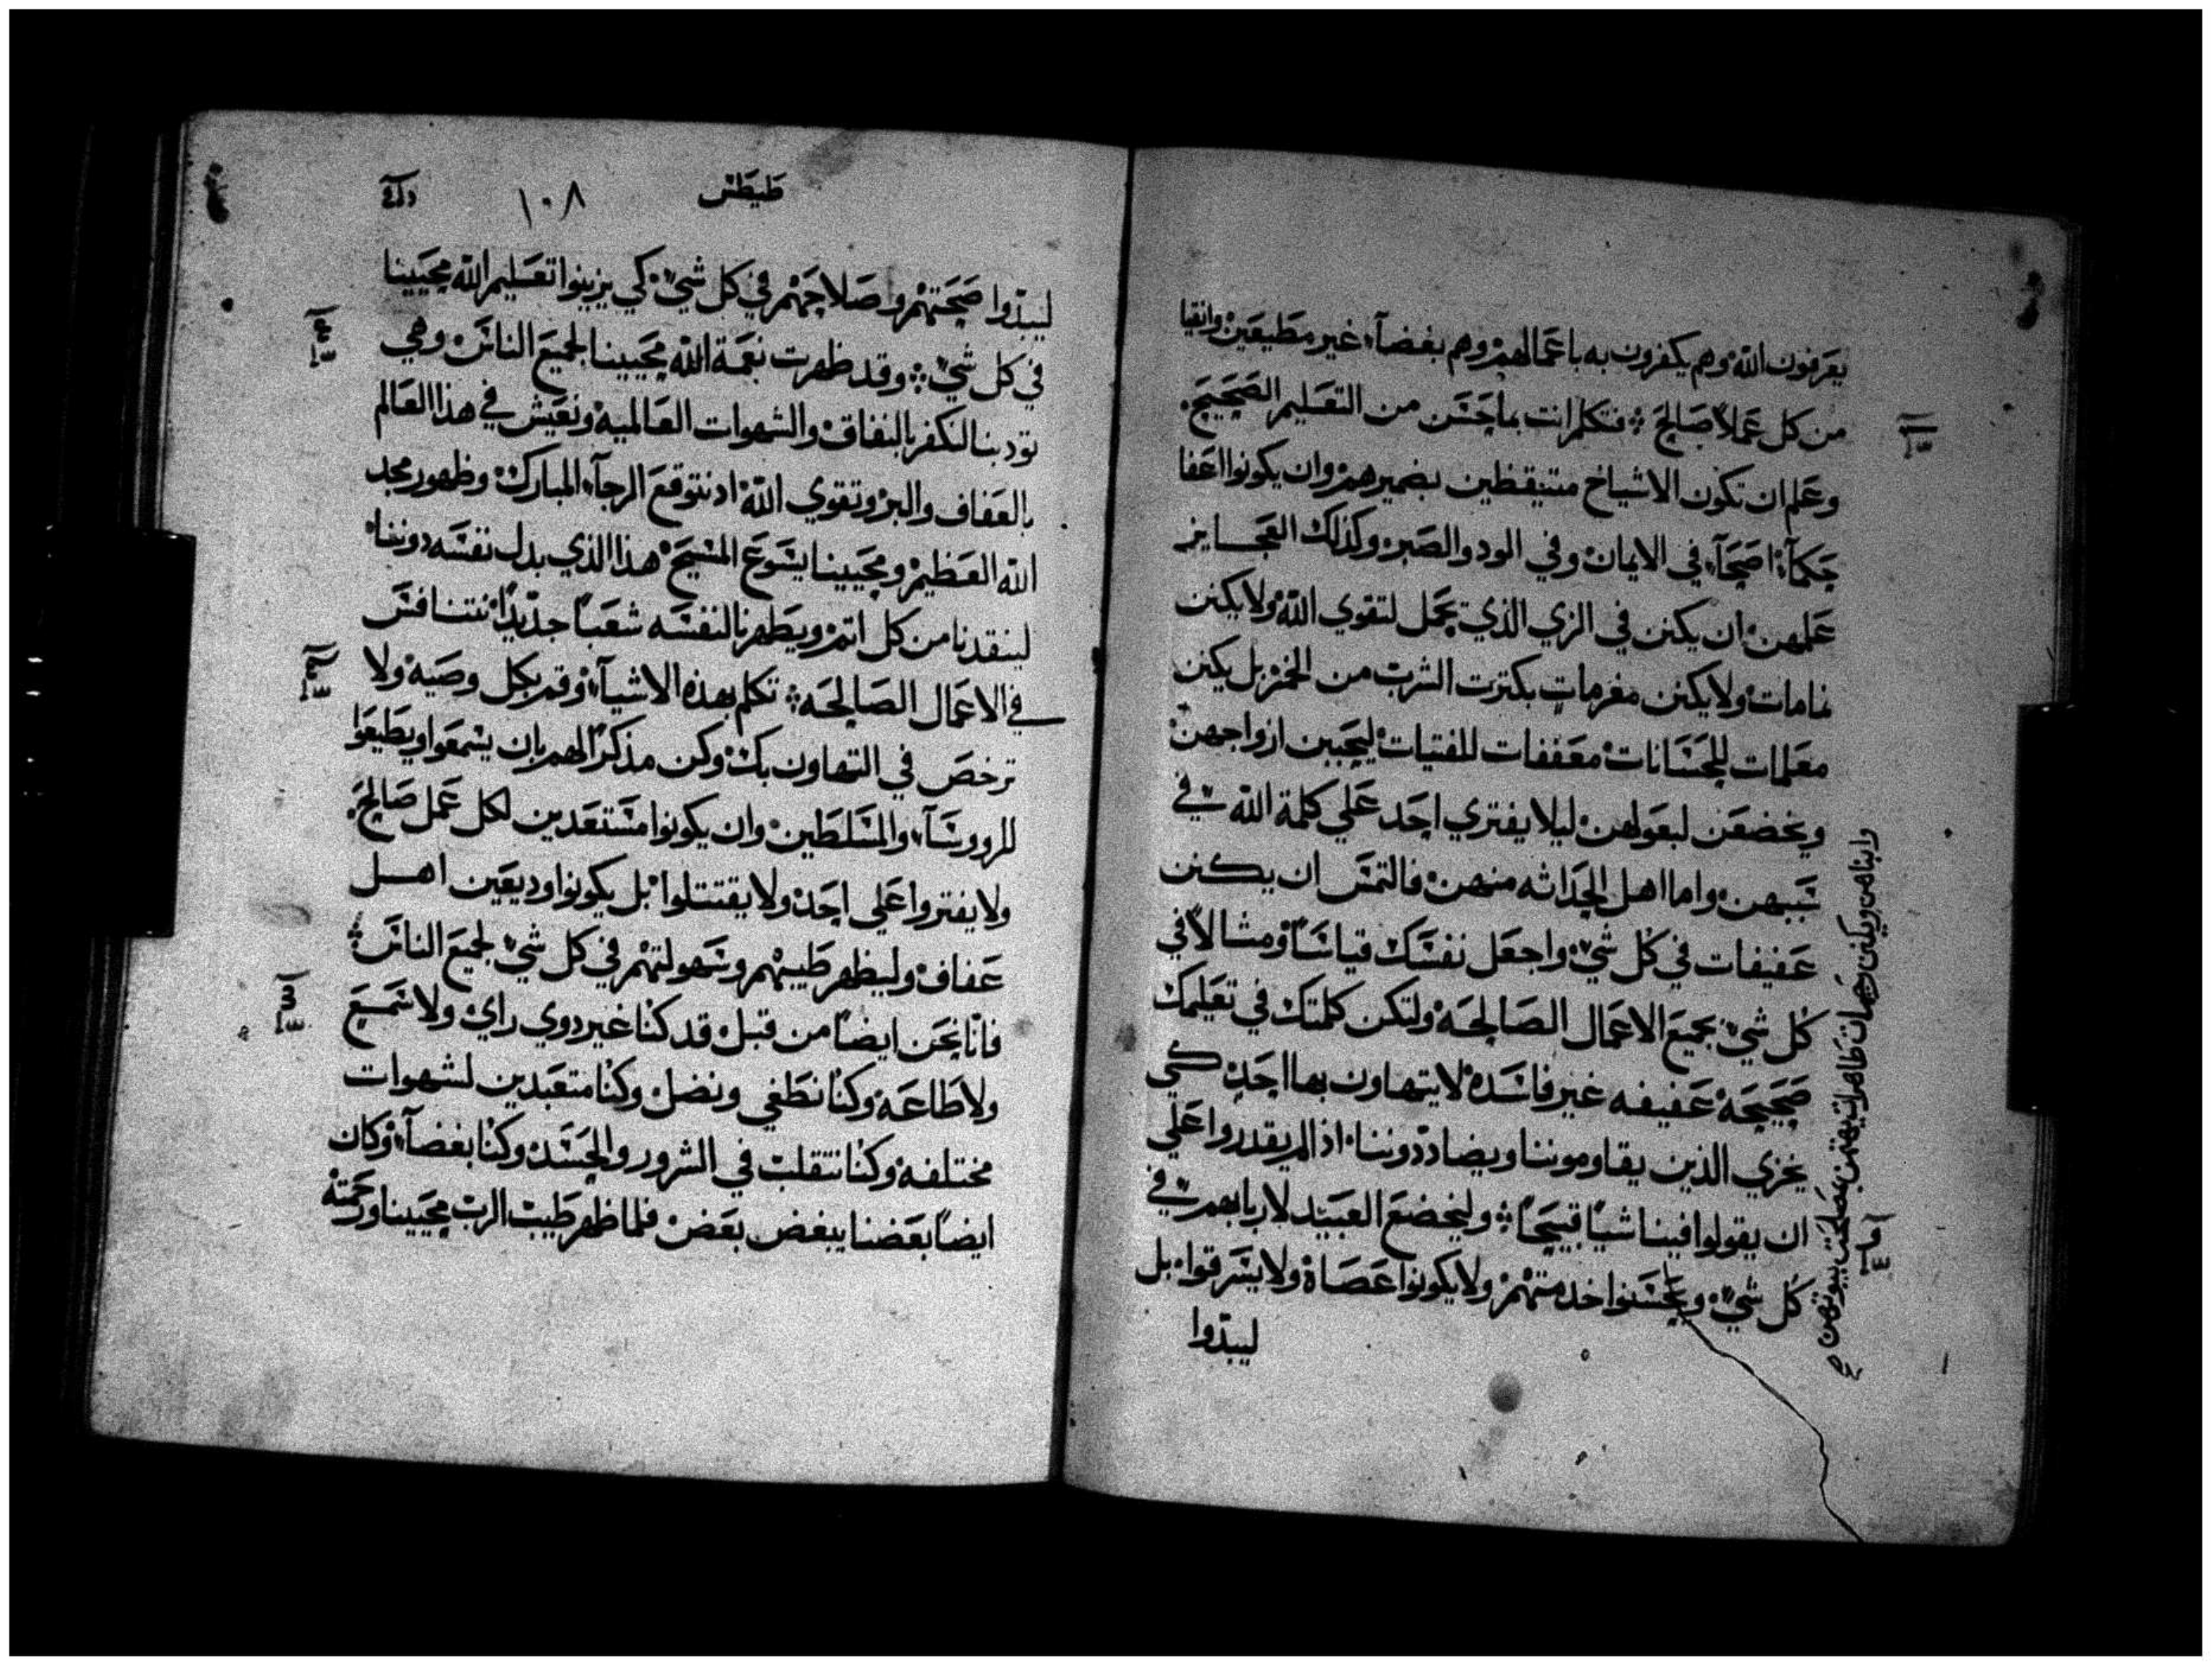 يعرفون الله وهم يكفرون به باعمالهم وهم بغضآء غير مطيعين وانقيا
من كل عملاً صالح فتكلم انت بما حسن من التعليم الصحيح.
وعلم ان تكون الاشياخ متيقظين بضميرهم وان يكونوا اعفا
حكمآء اصحآء في الايمان وفي الود والصبر وكذلك العجايز
علمهن ان يكنن في الزي الذي يجمل لتقوي الله ولا يكنن
نمامات ولا يكنن مغرمات بكثرت الشرب من الخمر بل يكنن
معلمات للحسانات معففات للفتيات ليحببن ازواجهن
ويخضعن لبعولهن ليلا يفتري احد علي كلمة الله في
سببهن واما اهل الحداثه منهن فالتمس ان يكنن
عفيفات في كل شي واجعل نفسك قياساً ومثالاً في
كل شي بجميع الاعمال الصالحه ولتكن كلمتك في تعليمك
صحيحة عفيفه غير فاسده لا يتهاون بها احد كي
يخزي الذين يقاوموننا ويضاددوننا اذا لم يقدروا علي
ان يقولوا فينا شياً قبيحاً وليخضع العبيد لاربابهم في
كل شي ويحسنوا خدمتهم ولا يكونوا عصاة ولا يسرقوا بل
ليبدّوا
وابناهن ويكنن رحمات طاهرات يهتمن بمصلحت بيوتهن صح
طيطس
١٠٨
ليبدّوا صحتهم وصلاحهم في كل شي كي يزينوا تعليم الله محيينا
في كل شي وقد ظهرت نعمة الله محيينا لجميع الناس وهي
تودبنا لنكفر بالنفاق والشهوات العالمية ونعيش في هذا العالم
بالعفاف والبر وتقوي الله اذ نتوقع الرجآء المبارك وظهور مجد
الله العظيم ومحيينا يشوع المسيح هذا الذي بدل نفسه دوننا
لينقدنا من كل اثم ويطهرنا لنفسه شعباً جديداً نتنافس
في الاعمال الصالحه تكلم بهذه الاشيآء وقم بكل وصيه ولا
ترخص في التهاون بك وكن مذكراً لهم بان يسمعوا ويطيعوا
للرووسآء والمسلطين وان يكونوا مستعدين لكل عمل صالح.
ولا يفتروا علي احد ولا يقتتلوا بل يكونوا وديعين اهل
عفاف وليظهر طيبهم وسهولتهم في كل شي لجميع الناس
فانّا نحن ايضاً من قبل قد كنا غير دوي راي ولا سميع
ولا طاعة وكنا نطغي ونضل وكنا متعبدين لشهوات
مختلفة وكنا نتقلب في الشرور والحسد وكنا بغضآء وكان
ايضاً بعضنا يبغض بعض فلما ظهر طيبت الرب محيينا ورحمته